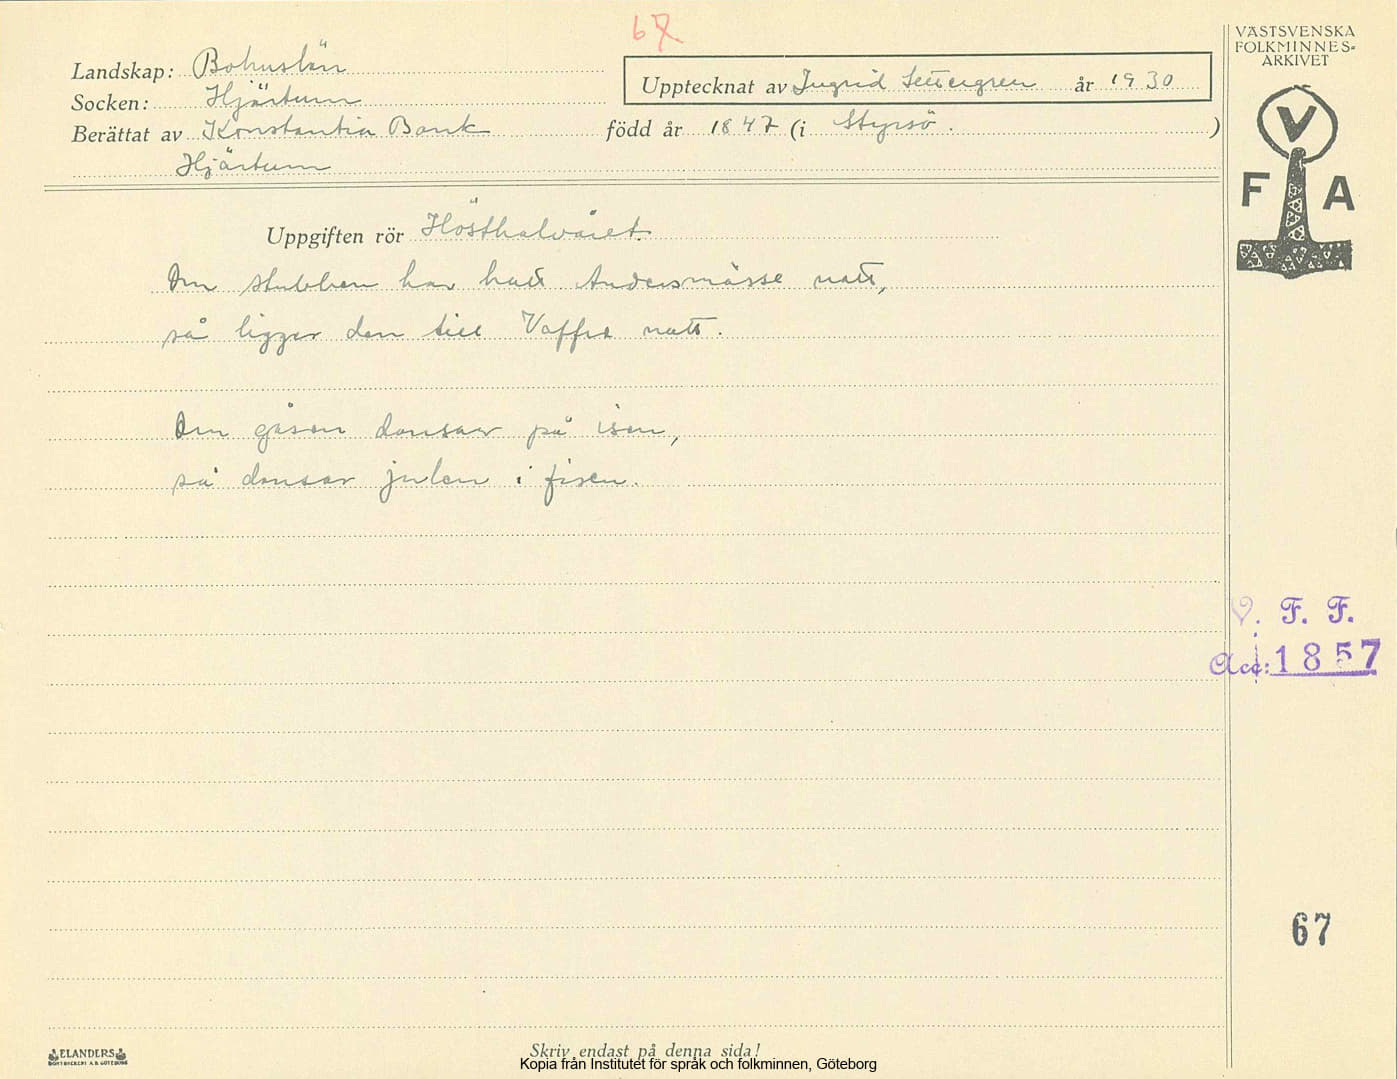 67
VÄSTSVENSKA
FOLKMINNES-
ARKIVET
Landskap: Bohuslän
Upptecknat av Ingrid Settergren år 1930
Socken: Hjärtum
Berättat av Konstantia Bank född år 1847 (i Styrsö.)
Hjärtum
V
F A
Uppgiften rör Hösthalvåret.
Om stubben har hatt Andersmässe natt,
så ligger den till Vaffre natt.
Om gåsen dansar på isen,
så dansar julen i fisen.
V. F. F.
Acc: 1857
67
ELANDERS
BOKTRYCKERI A.B. GÖTEBORG
Skriv endast på denna sida!
Kopia från Institutet för språk och folkminnen, Göteborg